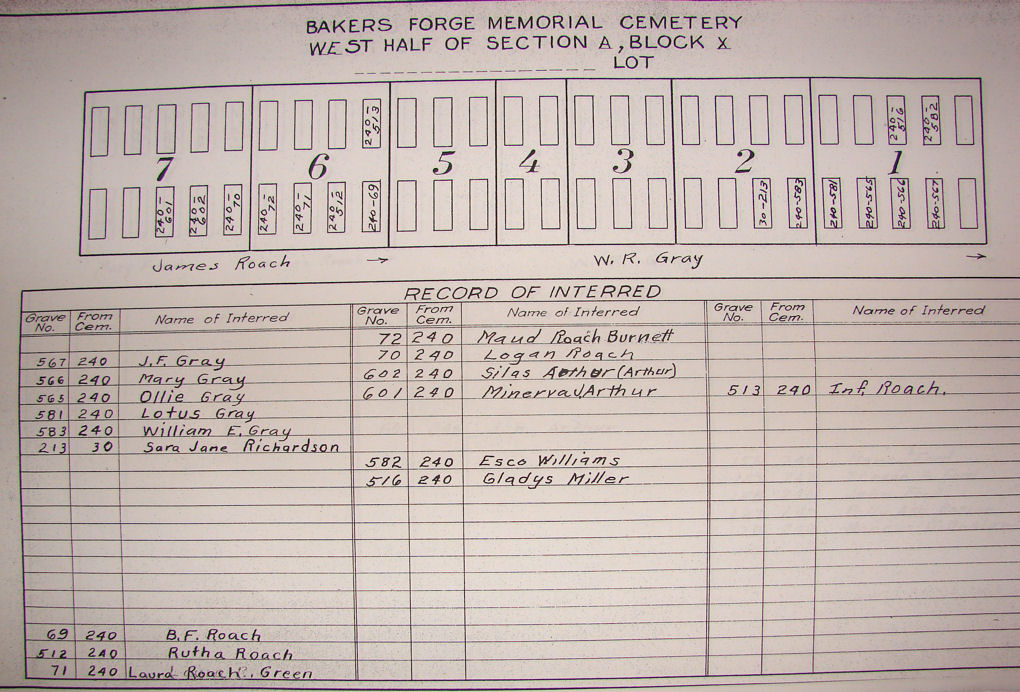 BAKERS FORGE MEMORIAL CEMETERY
WEST HALF OF SECTION A, BLOCK X
LOT
240-513
240-516
240-582
7
6
5
4
3
2
1
240-601
240-602
240-70
240-72
240-71
240-512
240-69
30-213
240-583
240-581
240-565
240-566
240-567
James Roach →
W. R. Gray →
RECORD OF INTERRED
Grave No. From Cem. Name of Interred Grave No. From Cem. Name of Interred Grave No. From Cem. Name of Interred
72 240 Maud Roach Burnett
567 240 J.F. Gray 70 240 Logan Roach
566 240 Mary Gray 602 240 Silas (Arthur)
565 240 Ollie Gray 601 240 Minerva Arthur 513 240 Inf. Roach.
581 240 Lotus Gray
583 240 William E. Gray
213 30 Sara Jane Richardson
582 240 Esco Williams
516 240 Gladys Miller
69 240 B.F. Roach
512 240 Rutha Roach
71 240 Laura Roach?, Green